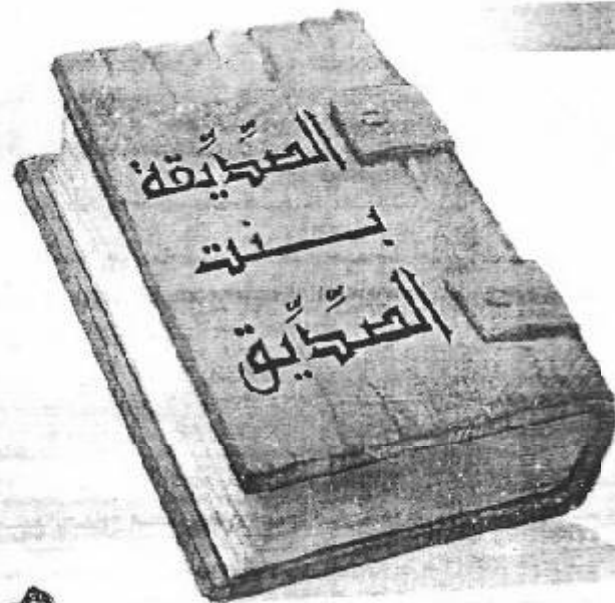 الصِّدِّيقة
بنت
الصِّدِّيق